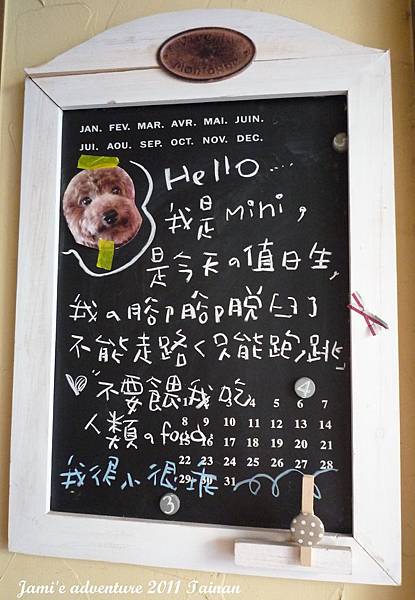 JAN. FEV. MAR. AVR. MAI. JUIN.
JUI. AOU. SEP. OCT. NOV. DEC.
Hello....
我是mini，
是今天の值日生，
我の腳腳脫臼了
不能走路く只能跑跳」
不要餵我吃
人類のfood
我很小很乖
1 2 3 4 5 6 7
8 9 10 11 12 13 14
15 16 17 18 19 20 21
22 23 24 25 26 27 28
29 30 31
4
3
Jami'e adventure 2011 Tainan